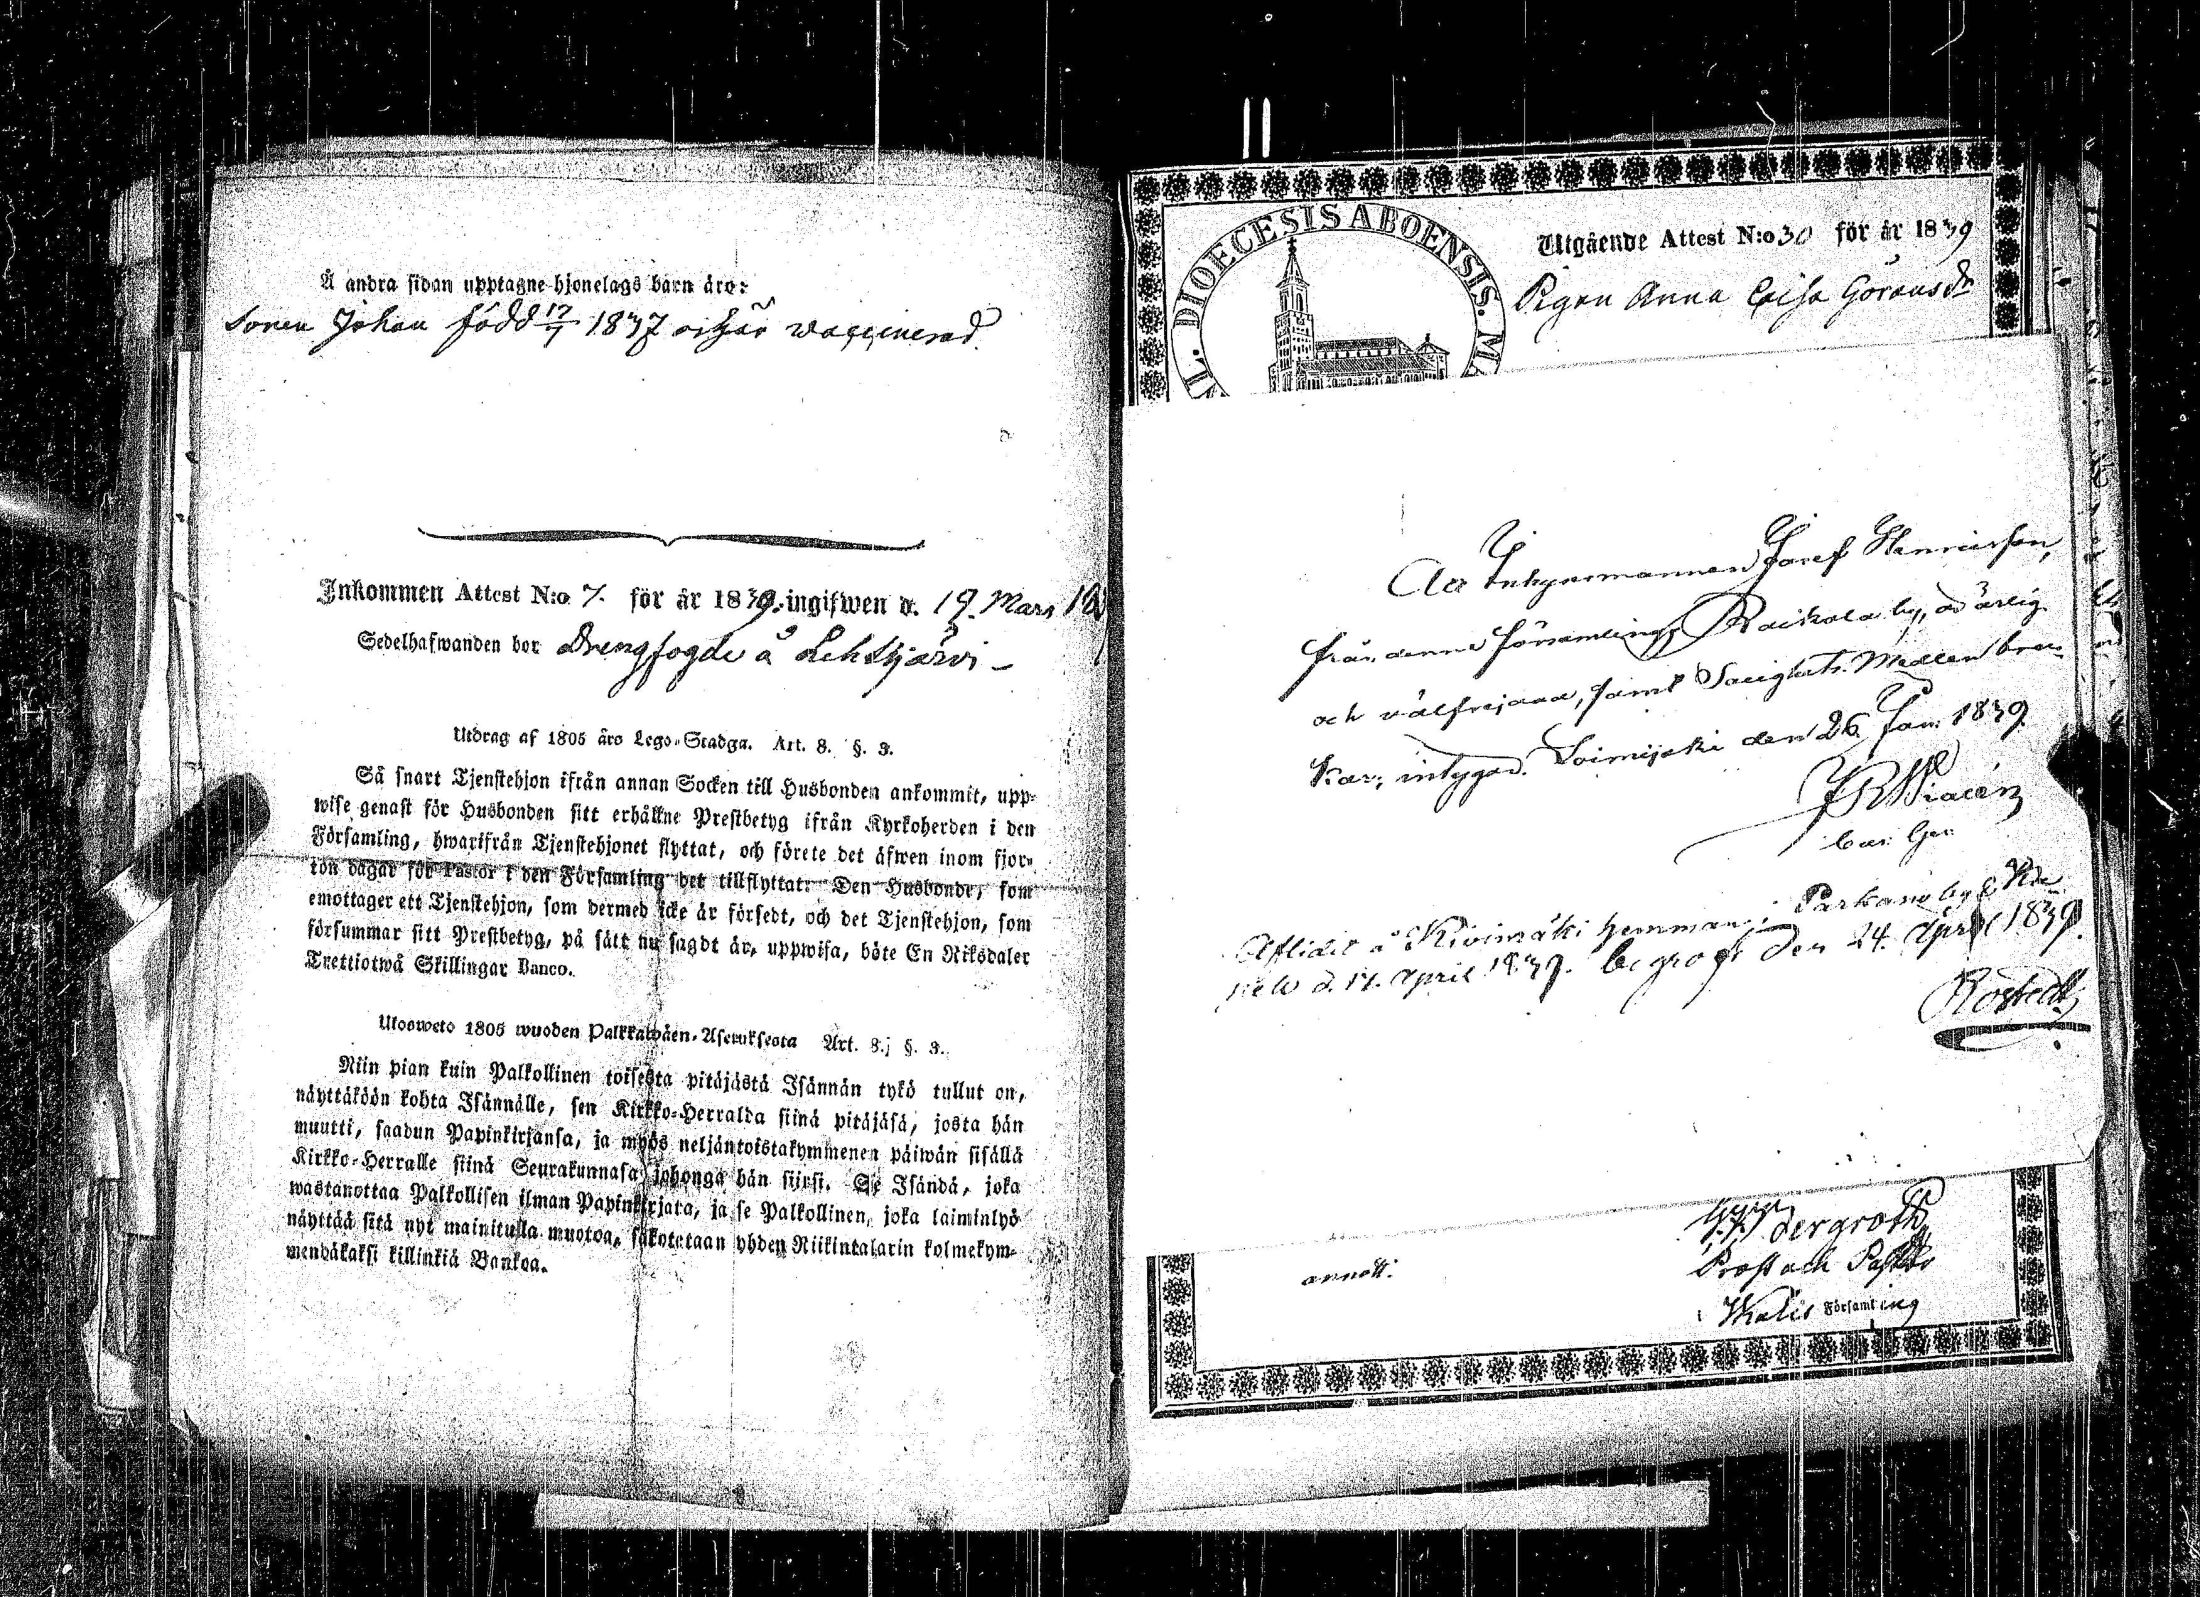 Å andra sidan upptagne hjonelags barn äro:
Sonen Johan född 17/7 1837 är waccinerad.
Inkommen Attest N:o 7. för år 1839. ingifwen d. 19. Mars
Sedelhafwanden bor Drengfogde å Lehtjärvi
Utdrag af 1805 års Lego-Stadga. Art. 8. §. 3.
Så snart Tjenstehjon ifrån annan Socken till Husbonden ankommit, upp-
wise genast för Husbonden sitt erhållne Prestbetyg ifrån Kyrkoherden i den
Församling, hwarifrån Tjenstehjonet flyttat, och förete det äfwen inom fjor-
ton dagar för Pastor i den Församling det tillflyttat. Den Husbonde, som
emottager ett Tjenstehjon, som dermed icke är försedt, och det Tjenstehjon, som
försummar sitt Prestbetyg, på sätt nu sagdt är, uppwisa, böte En Riksdaler
Trettiotwå Skillingar Banco.
Ulosweto 1805 wuoden Palkkalwäen-Aseruksesta Art. 8. §. 3.
Niin pian kuin Palkollinen toisesta pitäjästä Isännän tykö tullut on,
näyttäköön kohta Isännälle, sen Kirkko-Herralda siinä pitäjäsä, josta hän
muutti, saadun Papinkirjansa, ja myös neljäntoistakymmenen päiwän sisällä
Kirkko-Herralle siinä Seurakunnasa johonga hän siirsi. Se Isändä, joka
wastanottaa Palkollisen ilman Papinkirjata, ja se Palkollinen, joka laiminlyö
näyttää sitä nyt mainitulla muotoa, sakotetaan yhden Riikintalarin kolmekym-
mendäkaksi killinkiä Bankoa.
SIGIL. DIOECESIS ABOENSIS. MA
Utgående Attest N:o 30 för år 1839
Pigan Anna Caisa Göransdr
Att Inhysesmannen Josef Henricsson,
från denne församlings Raikola by, är ärlig
och välfrejdad, samt Salighets Medlen bru-
kar; intygar. Loimijoki den 26 Jan: 1839.
Aflidit å Kivimäki hemman i Parkano by &
d. 17. April 1839. begrofs den 24. April 1839.
Rostedt
annott.
Prost och Pastor
i Församling